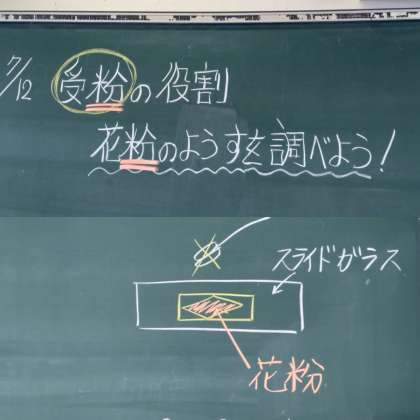 9/12 受粉の役割
花粉のようすを調べよう!
スライドガラス
花粉